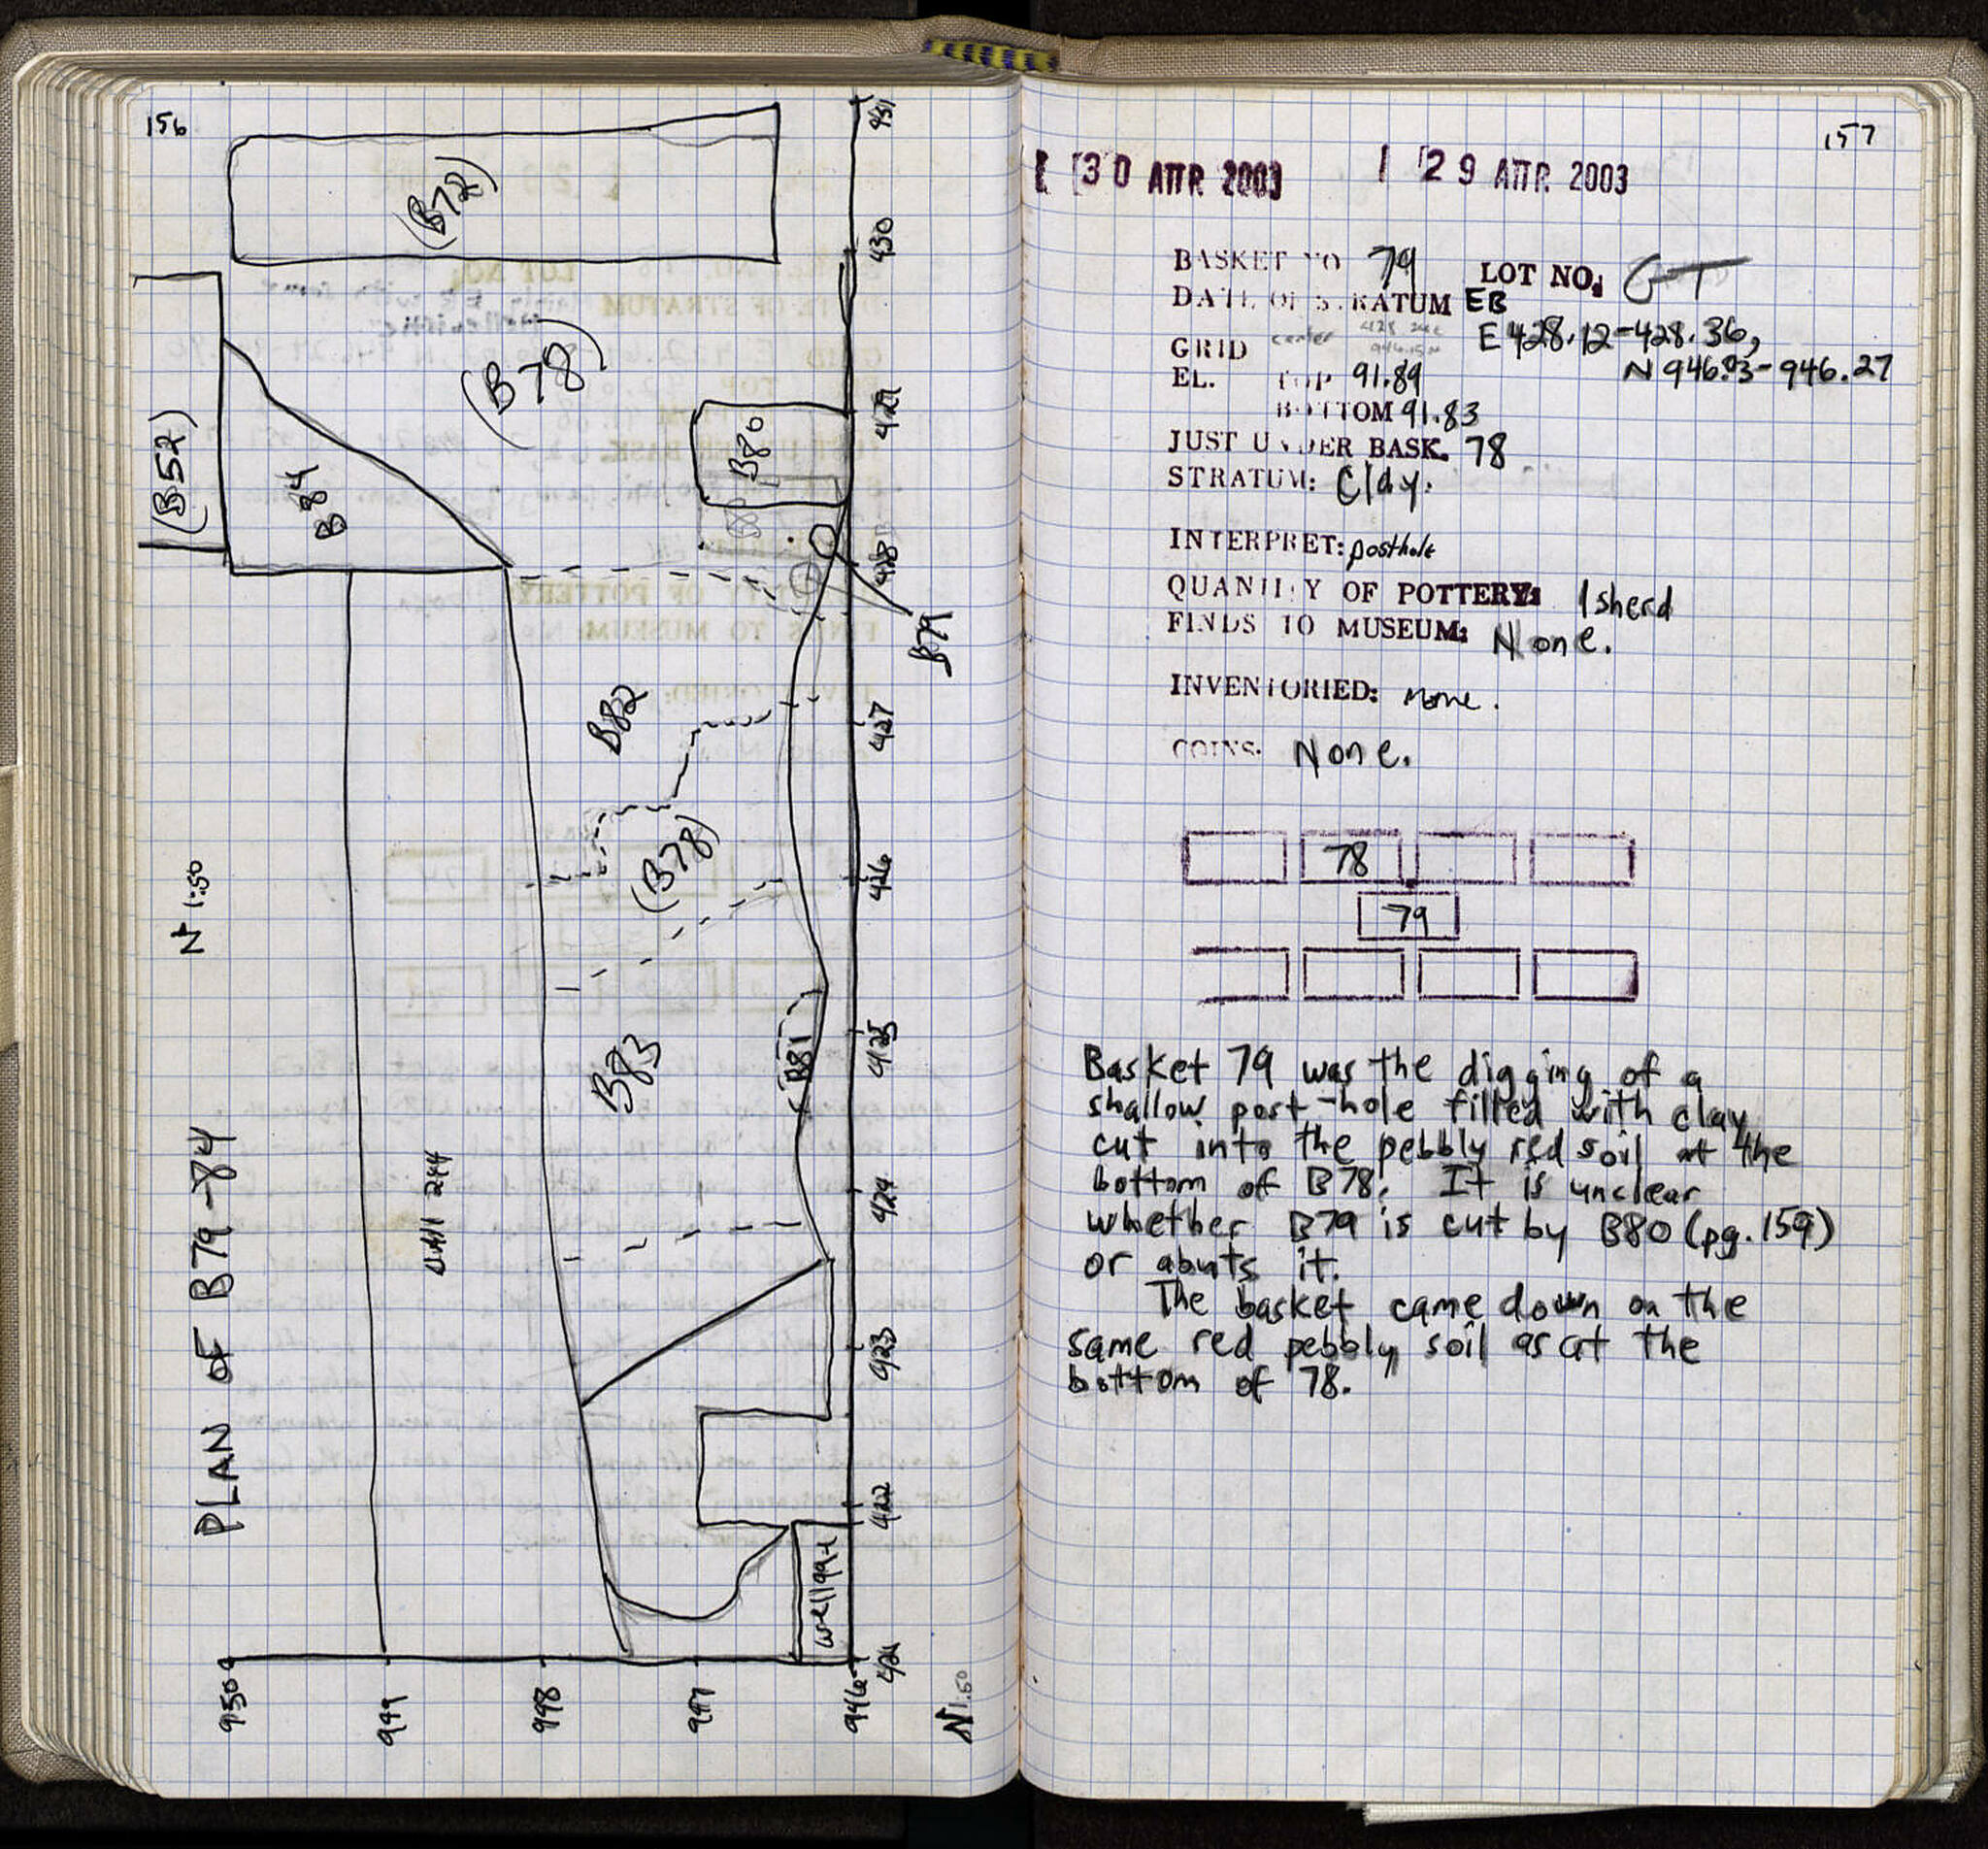 156
PLAN of B79-84
N 1:50
(B72)
(B52)
B84
(B78)
B80
B79
B82
(B78)
B83
B81
Wall 244
431
430
429
428
427
426
425
424
423
422
421
950
949
948
947
946
N 1:50
157
30 ΑΠΡ. 2003
29 ΑΠΡ. 2003
BASKET NO 79 LOT NO:
DATE OF STRATUM EB
GRID center E 428.12-428.36,
N 946.03-946.27
EL. TOP 91.89
BOTTOM 91.83
JUST UNDER BASK. 78
STRATUM: Clay.
INTERPRET: posthole
QUANTITY OF POTTERY: 1 sherd
FINDS TO MUSEUM: None.
INVENTORIED: None.
COINS. None.
78
79
Basket 79 was the digging of a
shallow post-hole filled with clay
cut into the pebbly red soil at the
bottom of B78. It is unclear
whether B79 is cut by B80 (pg. 159)
or abuts it.
The basket came down on the
same red pebbly soil as at the
bottom of 78.